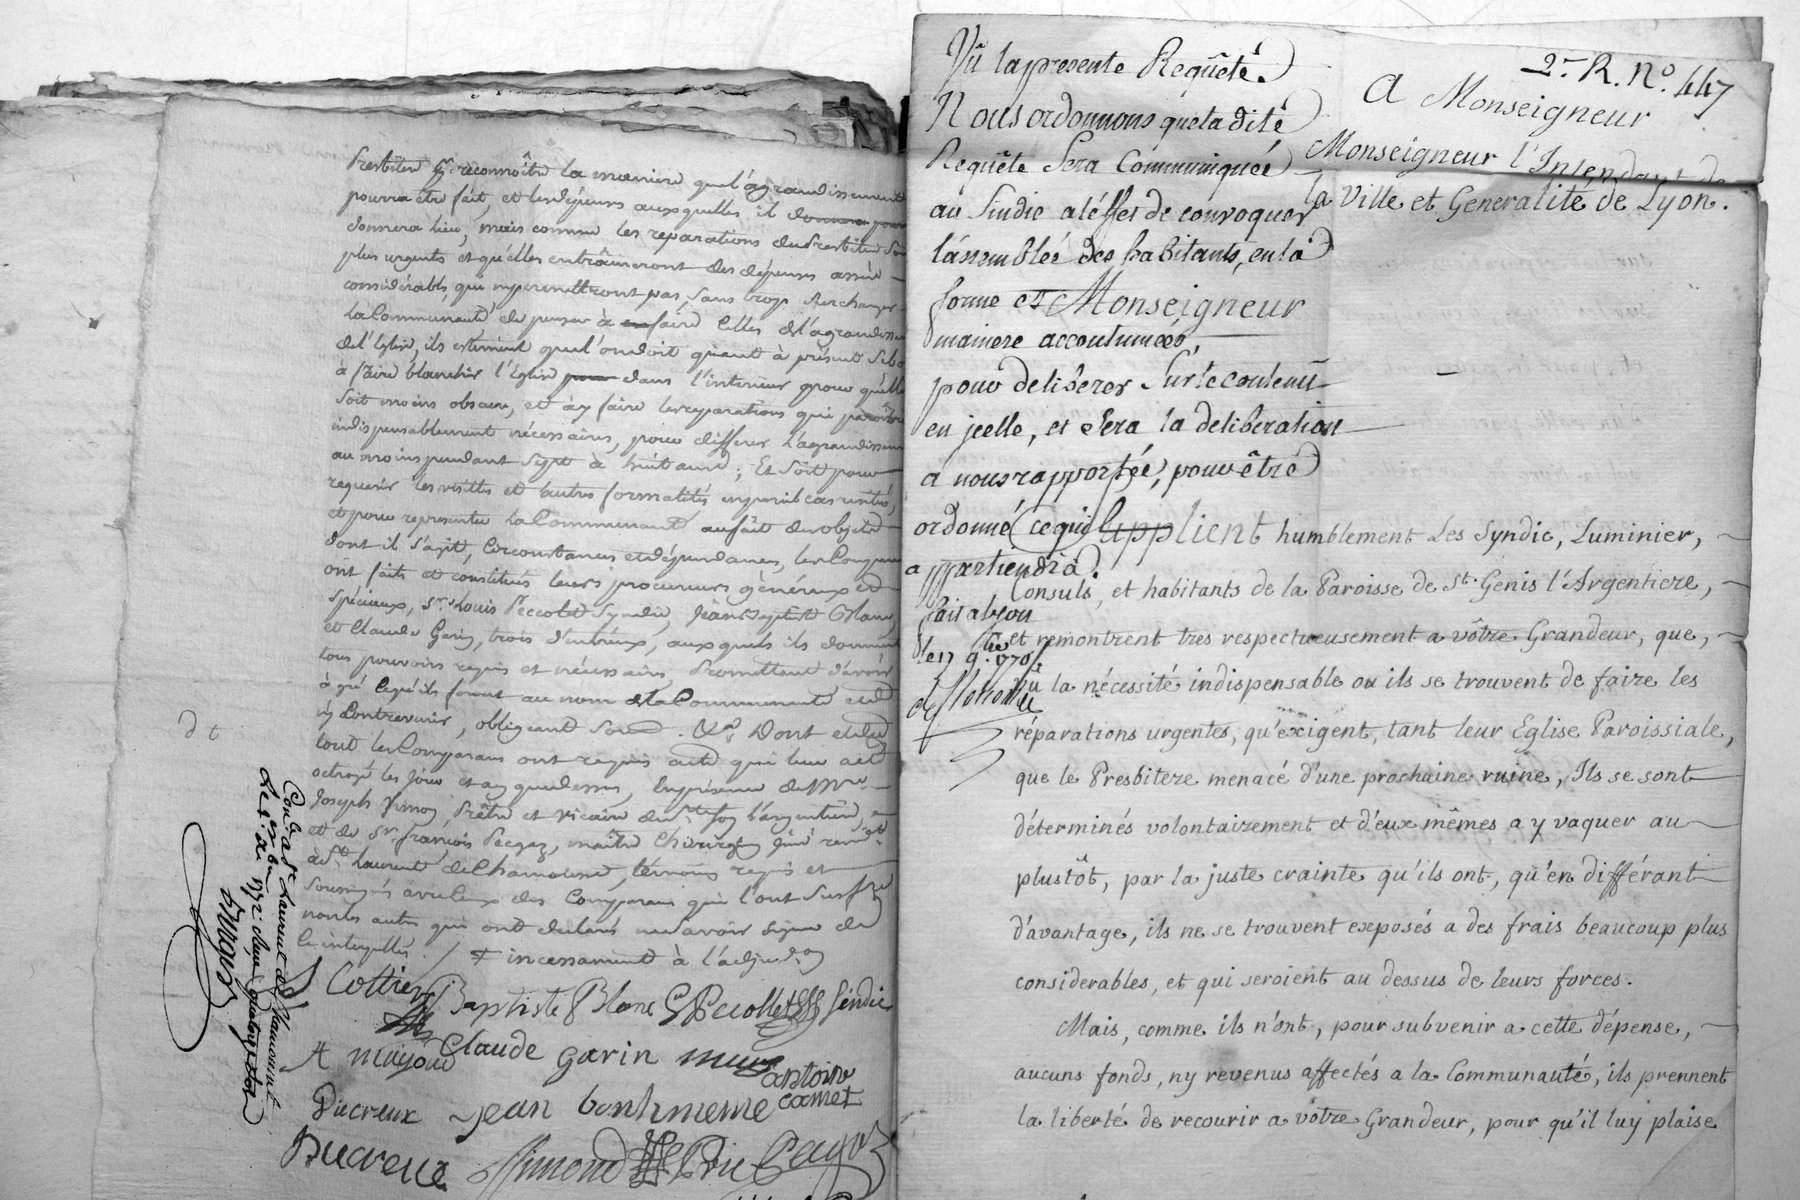 Presbitere pr reconnoître la maniere que l'agrandissement
pourra être fait, et les dépenses auxquelles il donnera
donnera lieu, mais comme les reparations du Presbitere sont
plus urgentes et qu'elles entraîneront des dépenses assés
considérables, qui ne permettront pas, sans trop surcharger
la Communauté de penser à faire celles de l'agrandissement
de l'Eglise, ils estiment que l'on doit quant à présent se
à faire blanchir l'Eglise pour dans l'interieur pour qu'elle
soit moins obscure, et a y faire les reparations qui paroîtront
indispensablement nécessaires, pour differer l'agrandissement
au moins pendant sept à huit ans; Et soit pour
requerir les visites et autres formalités en pareil cas
et pour representer la Communauté au fait des objets
dont il s'agit, Circonstances et dépendances, les Comparans
ont faits et constitués leurs procureurs généraux et
spéciaux, Srs Louis Pecolet Syndic, Jean Baptiste Blanc,
et Claude Garin, trois d'entr'eux, auxquels ils donnent
tous pouvoirs requis et nécessaires, Promettant d'avoir
à gré ce qu'ils feront au nom de la Communauté et de
n'y Contrevenir, obligeant Dont et de
tout les Comparans ont requis acte qui leur a été
octroyé les jour et an que dessus, En présence de Mre
Joseph Simon, Prêtre et vicaire de Ste foy l'argentiere,
et de Sr françois Pecgaz, maître Chirurgien juré
à St Laurent de Chamousset, témoins requis et
soussignés avec ceux des Comparans qui l'ont sçu
non les autres qui ont declaré ne savoir signer de
ce interpellés. / incessament à l'adjudon
Cottier Baptiste Blanc Pecollet Sindic
A mayoud Claude garin
antoine
camet
Ducreux jean bonhmeme
Ducreux Simond
Conlé a St Laurent de Chamousset
Le 1772.
Vû la presente Requête.
Nous ordonnons que la dite
Requête Sera Communiquée
au Sindic a l'effet de convoquer
l'assemblée des habitants, en la
forme et
maniere accoutumées,
pour deliberer Sur le contenu
en jcelle, et Sera la deliberation
a nous rapportée, pour être
ordonné ce qui
appartiendra.
fait a Lyon
le 17 9.bre 1770
2e R. No. 447
A Monseigneur
Monseigneur l'Intendant de
la Ville et Generalité de Lyon.
Monseigneur
Supplient humblement Les Syndic, Luminier,
Consuls, et habitants de la Paroisse de St. Genis l'Argentiere,
et remontrent tres respectueusement a vôtre Grandeur, que,
vû la nécessité indispensable ou ils se trouvent de faire les
réparations urgentes, qu'exigent, tant leur Eglise Paroissiale,
que le Presbitere menacé d'une prochaine ruine, Ils se sont
déterminés volontairement et d'eux mêmes a y vaquer au
plustôt, par la juste crainte qu'ils ont, qu'en différant
d'avantage, ils ne se trouvent exposés a des frais beaucoup plus
considerables, et qui seroient au dessus de leurs forces.
Mais, comme ils n'ont, pour subvenir a cette dépense,
aucuns fonds, ny revenus affectés a la Communauté, ils prennent
la liberté de recourir a vôtre Grandeur, pour qu'il luy plaise